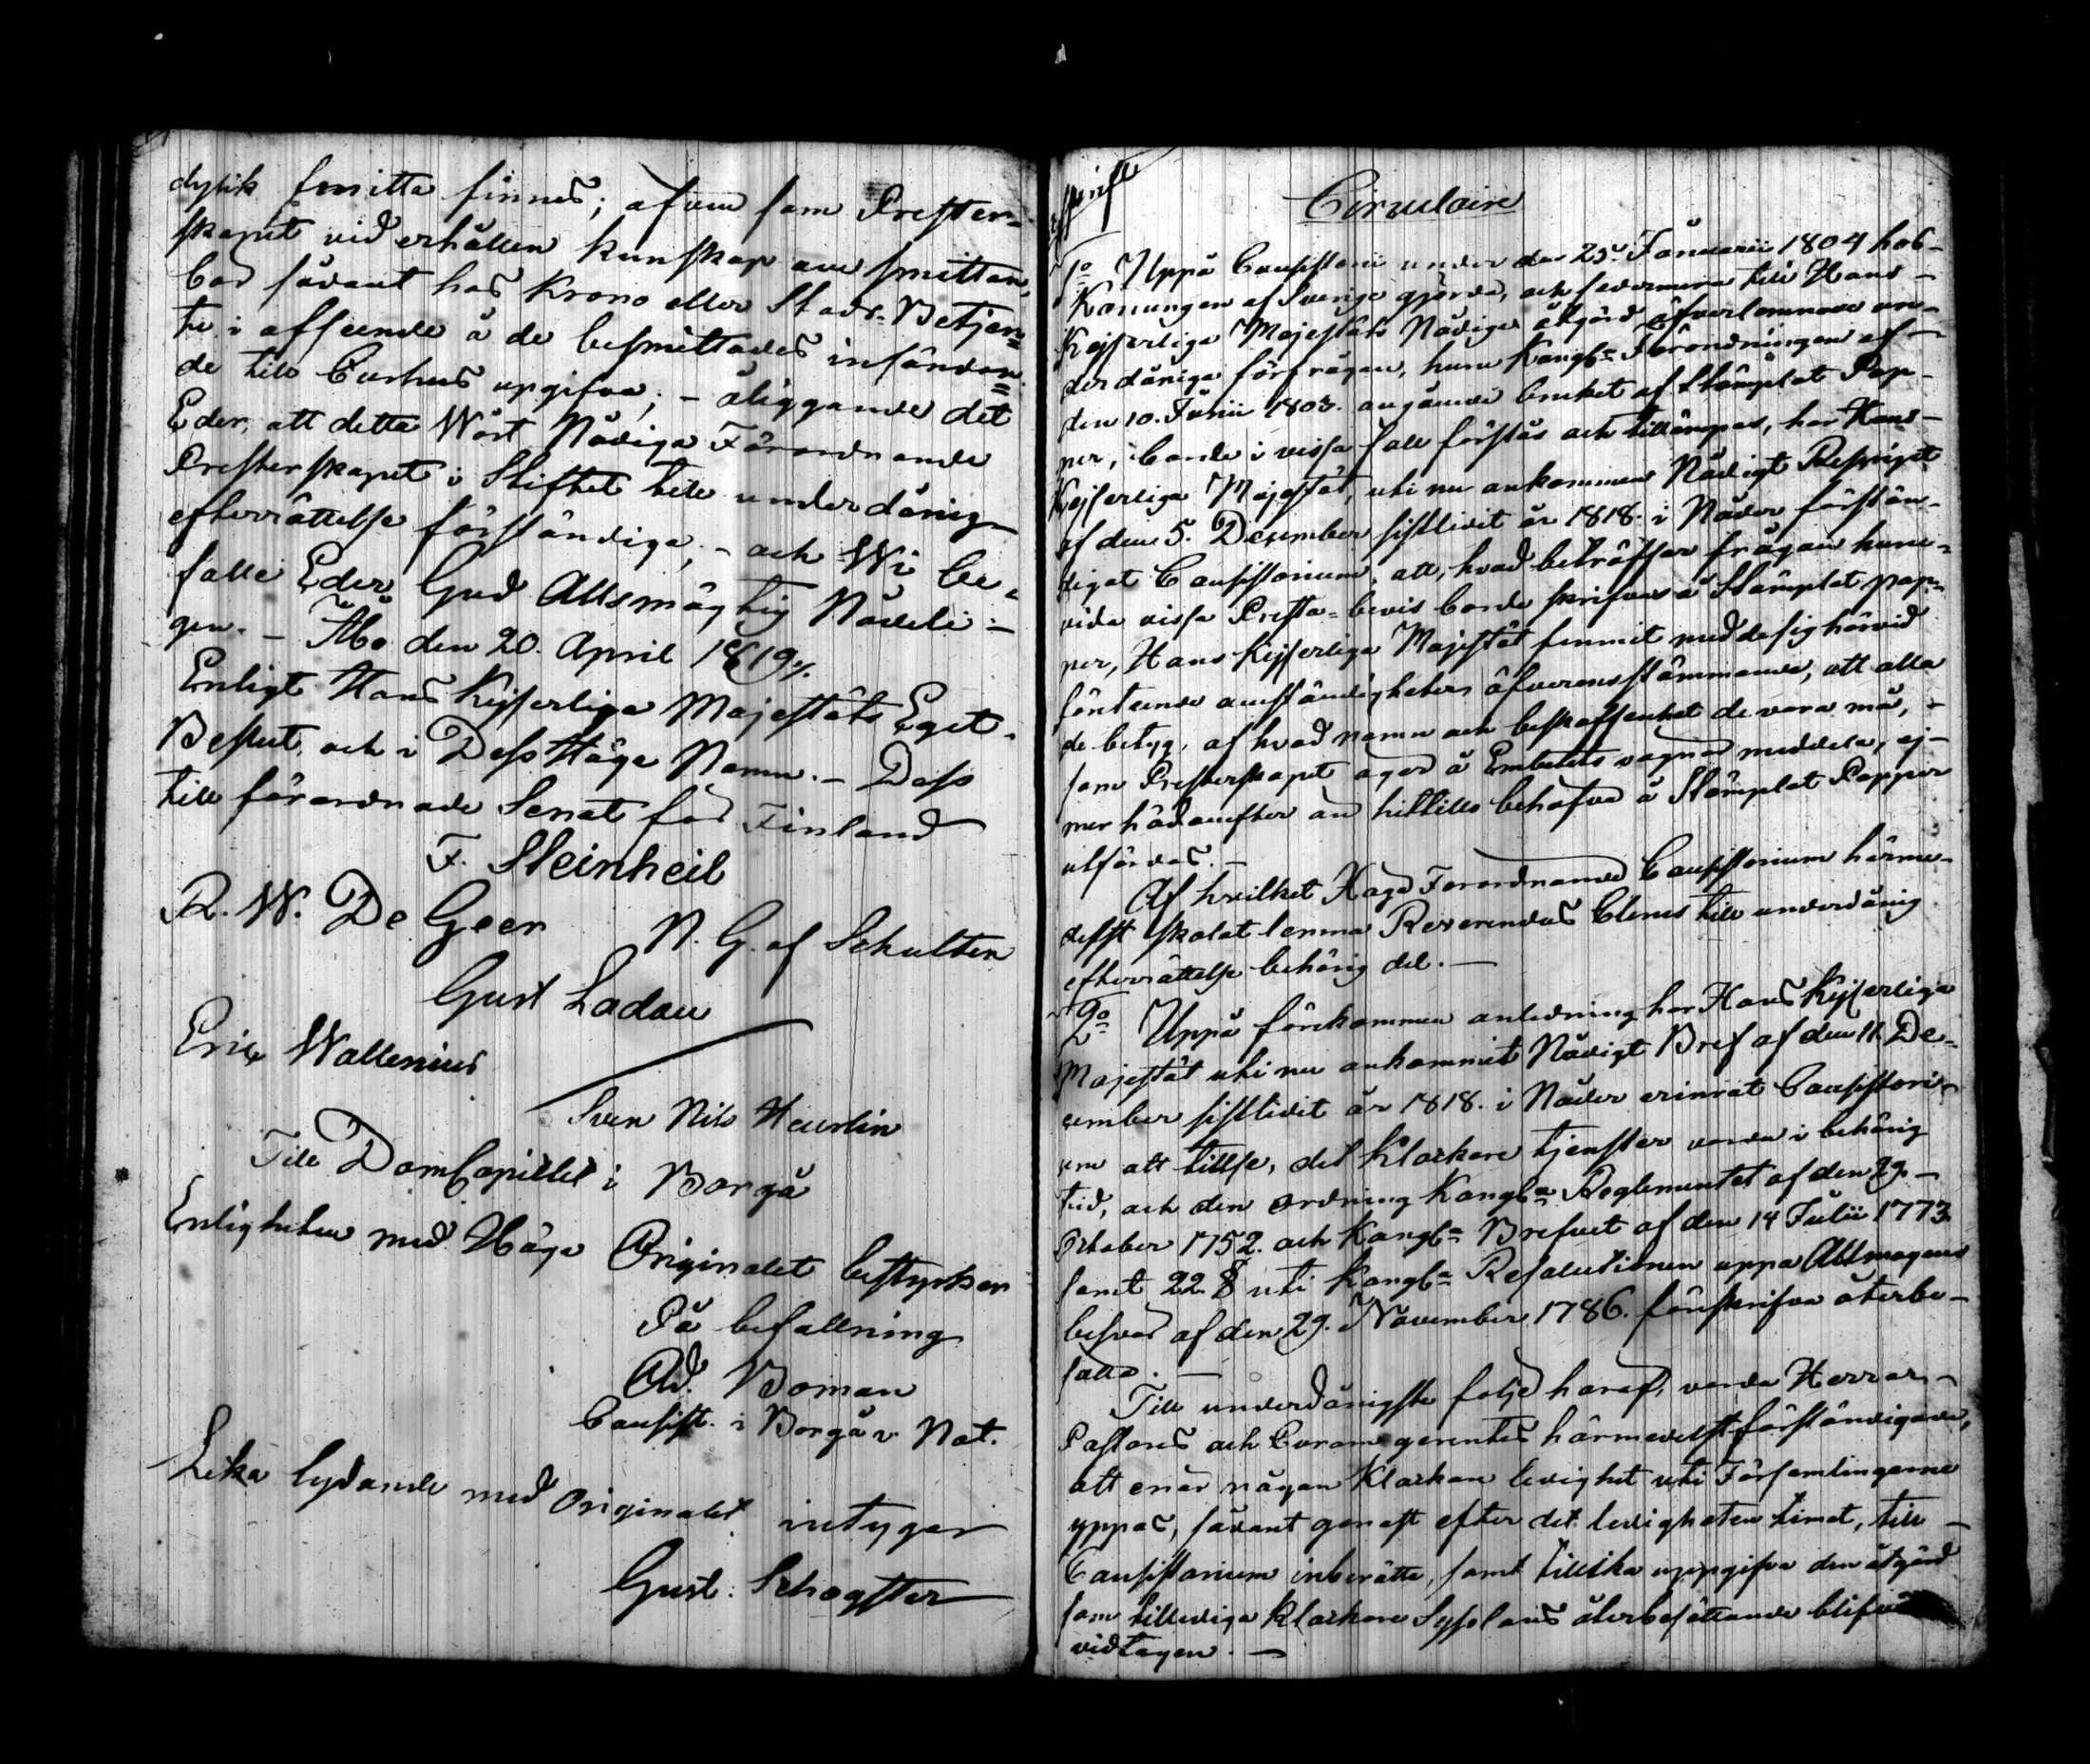 dylik smitta finnes; äfven som Prester=
skapet vid erhållen kunskap om smittan,
bör sådant hos Krono eller Stads-Betjen=
te i afseende å de besmittades insändan=
de till Curhus upgifva; - åliggande det
Eder, att detta Wårt Nådiga Förordnande
Presterskapet i Stiftet till underdånig
efterrättelse förständiga; - och Wi be-
falle Eder Gud Allsmägtig Nådeli-
gen. - Åbo den 20. April 1819.
Enligt Hans Kejserliga Majestäts Eget
Beslut, och i Dess Höga Namn. - Dess
till förordnade Senat för Finland
F. Steinheil
R. W. De Geer
N. G. af Schulten
Gust Ladau
Eric Wallenius
Sven Nils Heurlin
Till DomCapitlet i Borgå
Enligheten med Höga Originalet bestyrker
På befallning
Ad. Boman
Consist. i Borgå v. Not.
Lika lydande med Originalet intygar
Gust. Schogster
Circulaire
1o Uppå Consistorii under den 25. Januarii 1804 hos
Konungen af Sverige gjorda, och sedermera till Hans
Kejserliga Majestäts Nådiga åtgärd öfverlemnade un-
derdåniga förfrågan, huru Kongl. Förordningen af
den 10. Junii 1803. angående bruket af Stämplat Pap-
per, borde i vissa fall förstås och tillämpas, har Hans
Kejserliga Majestät, uti nu ankommen Nådigt Rescript
af den 5. December sistlidit år 1818. i Nåder förstän-
digat Consistorium, att, hvad beträffar frågan huru-
vida vissa Presta-bevis borde skrifvas å Stämplat pap-
per, Hans Kejserliga Majestät funnit med de sig härvid
företeende omständigheter öfverensstämmande, att alla
de betyg, af hvad namn och beskaffenhet de vara må,
som Presterskapet äger å Embetets vägnar meddela, ej
mer hädanefter än hittills behöfva å Stämplat Papper
utfärdas. -
Af hvilket Höga Förordnande Consistorium härme-
delst skolat lemna Reverendus Clerus till underdånig
efterrättelse behörig del. -
2o Uppå förekommen anledning har Hans Kejserliga
Majestät uti nu ankommit Nådigt Bref af den 11. De-
cember sistlidit år 1818. i Nåder erinrat Consistori-
um att tillse, det Klockare tjenster varda i behörig
tid, och den ordning Kongl. Reglementet af den 27.
October 1752. och Kongl. Brefvet af den 14 Julii 1773
samt 22 § uti Kongl. Resolutionen uppå Allmogens
besvär af den 29. November 1786. föreskrifva återbe-
satta. -
Till underdånigste följe häraf, varda Herrar
Pastores och Curam gerentes härmedelst förständigade,
att enär någon Klockare ledighet uti Församlingarne
yppas, sådant genast efter det ledigheten timat, till
Consistorium inberätta, samt tillika uppgifva den åtgärd
som till lediga Klockare Sysslans återbesättande blifvit
vidtagen. -